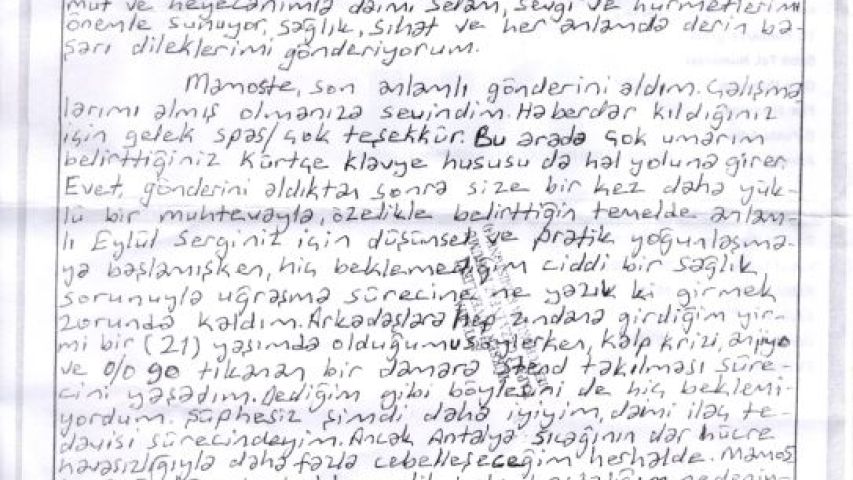 mut ve heyecanımla daimi selam, sevgi ve hürmetlerimi
önemle sunuyor, sağlık, sıhat ve her anlamda derin ba-
şarı dileklerimi gönderiyorum.
Mamoste, son anlamlı gönderini aldım. Çalışma-
larımı almış olmanıza sevindim. Haberdar kıldığınız
için gelek spas/çok teşekkür. Bu arada çok umarım
belirttiğiniz Kürtçe klavye hususu da hal yoluna girer.
Evet, gönderini aldıktan sonra size bir kez daha yük-
lü bir muhtevayla, özelikle belirttiğin temelde anlam-
lı Eylül Serginiz için düşünsel ve pratik yoğunlaşma-
ya başlamışken, hiç beklemediğim ciddi bir sağlık
sorunuyla uğraşma sürecine ne yazık ki girmek
zorunda kaldım. Arkadaşlara hep zındana girdiğim yir-
mi bir (21) yaşımda olduğumu söylerken, kalp krizi, anjiyo
ve %90 tıkanan bir damara stend takılması süre-
cini yaşadım. Dediğim gibi böylesini de hiç beklemi-
yordum. Şüphesiz şimdi daha iyiyim, dami ilaç te-
davisi sürecindeyim. Ancak Antalya sıcağının dar hücre
havasızlığıyla daha fazla cebelleşeceğim herhalde. Mamos-